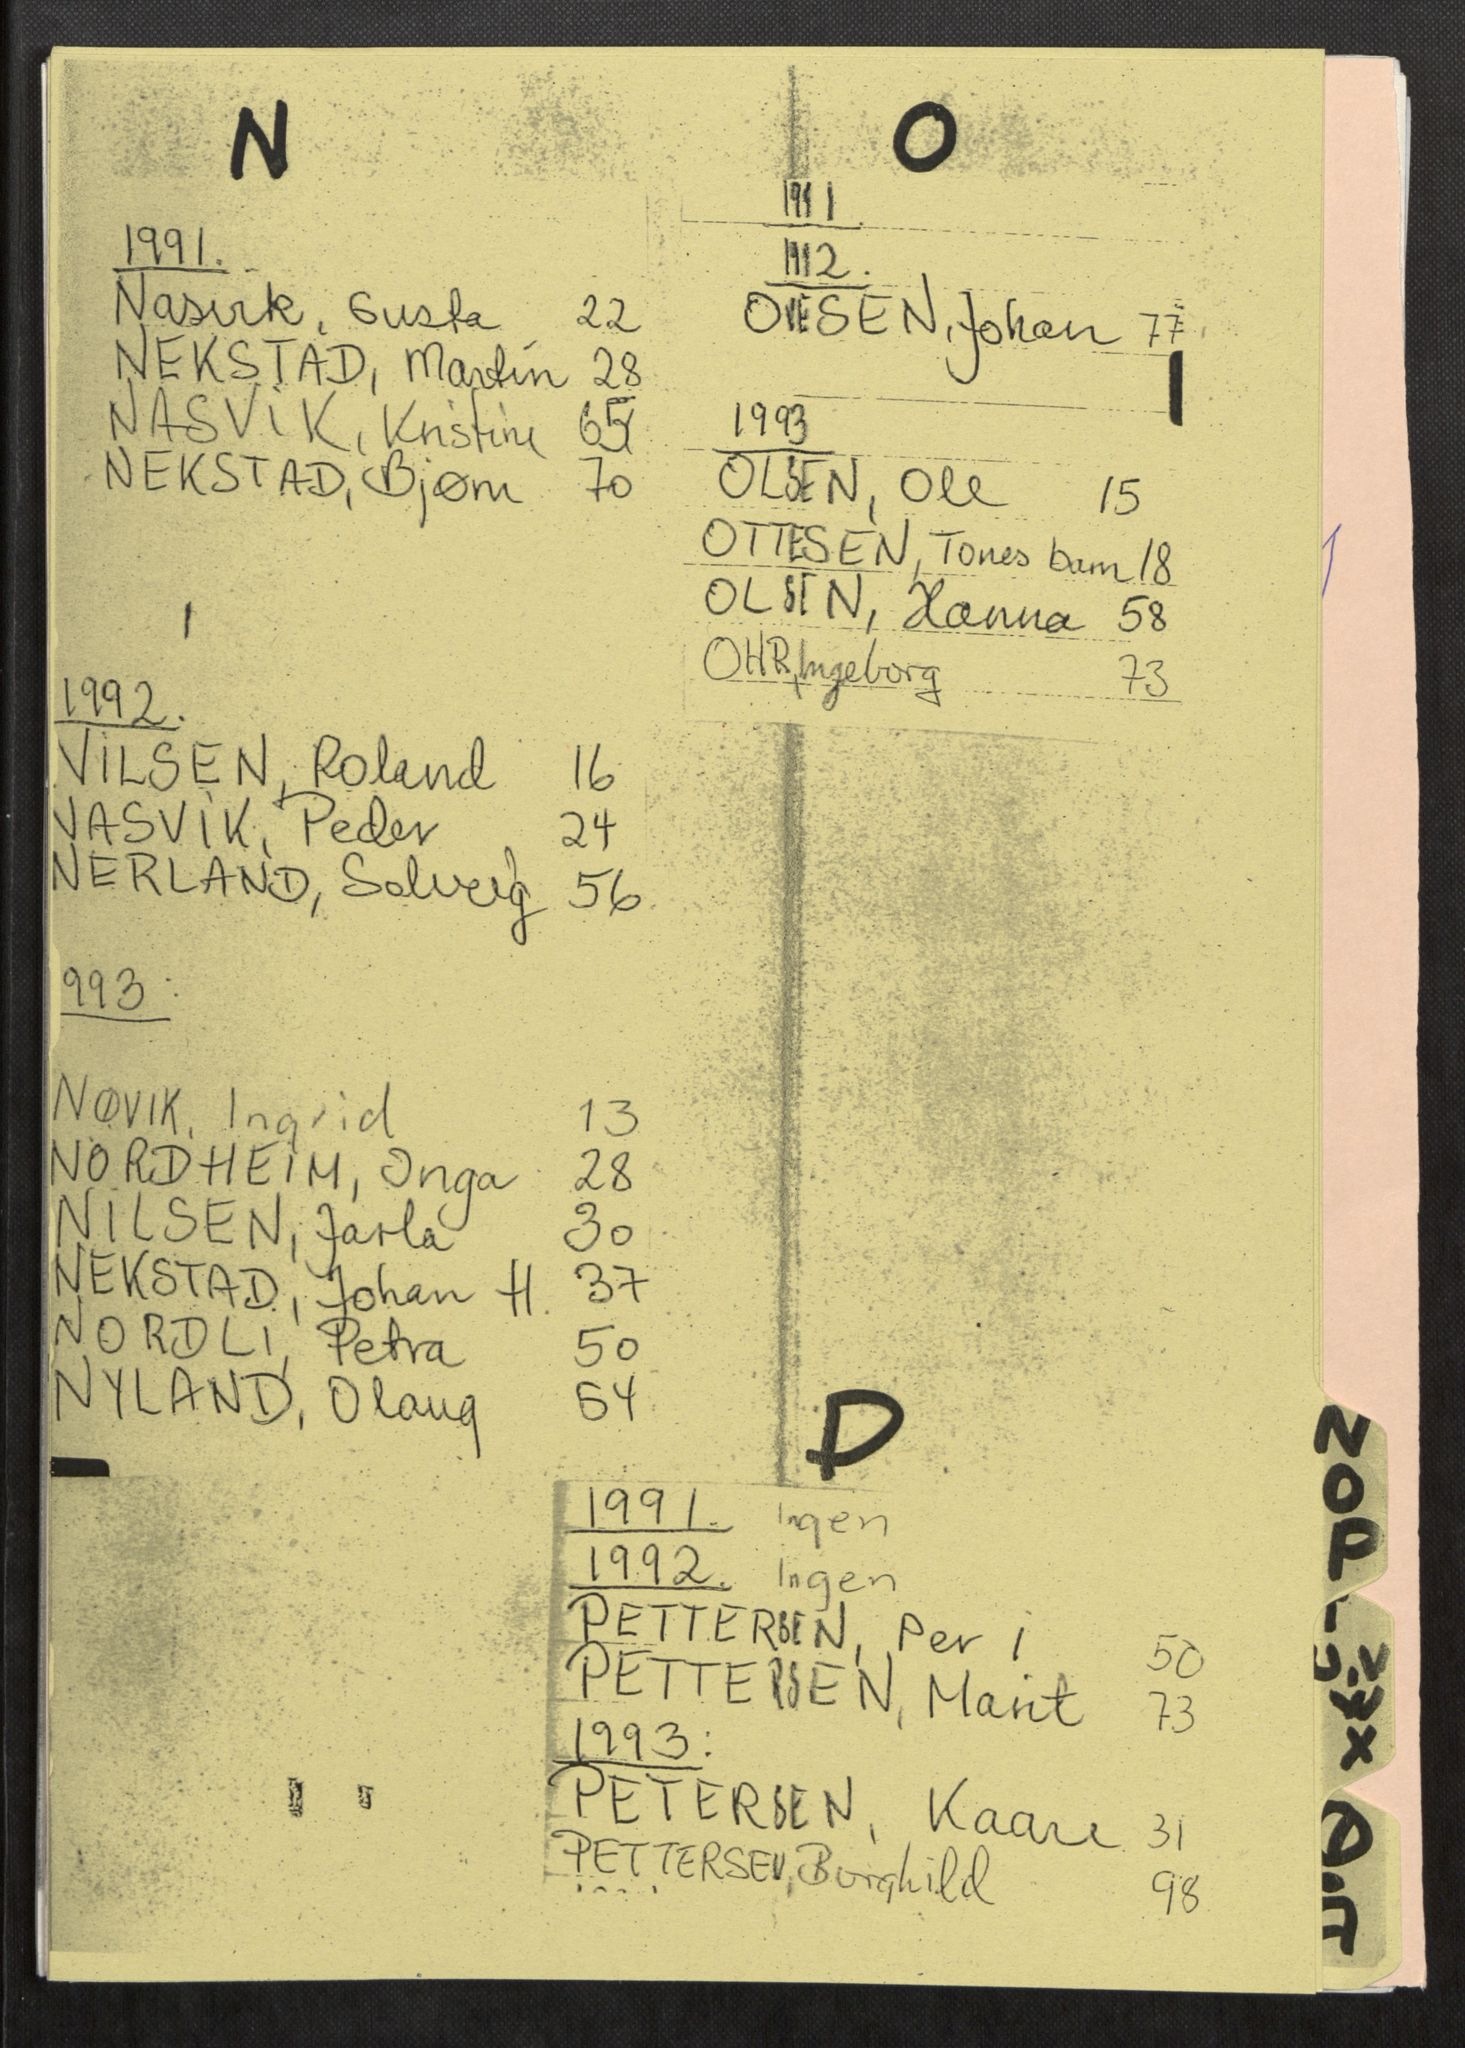 N
1991.
Nasvik, Gusta 22
NEKSTAD, Martin 28
NASVIK, Kristine 65
NEKSTAD, Bjørn 70
1992.
NILSEN, Roland 16
NASVIK, Peder 24
NERLAND, Solveig 56
993:
NØVIK, Ingrid 13
NORDHEIM, Inga 28
NILSEN, Jarla 30
NEKSTAD, Johan H. 37
NORDLI, Petra 50
NYLAND, Olaug 54
O
1991
1992.
OLSEN, Johan 77
1993
OLSEN, Ole 15
OTTESEN, Tones barn 18
OLSEN, Hanna 58
OHR, Ingeborg 73
P
1991. Ingen
1992. Ingen
PETTERSEN, Per i 50
PETTERSEN, Marit 73
1993:
PETERSEN, Kaare 31
PETTERSEN, Borghild 98
NOP